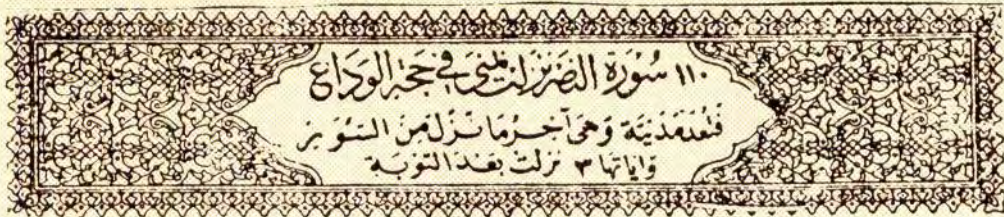 ١١٠ سُورَة النَّصْر نَزَلَت بِمِنىً فِي حَجَّةِ الوَدَاع
فَتُعَدُّ مَدَنِيَّة وَهِيَ آخِرُ مَا نَزَلَ مِنَ السُّوَر
وَآيَاتُهَا ٣ نَزَلَتْ بَعْدَ التَّوْبَة